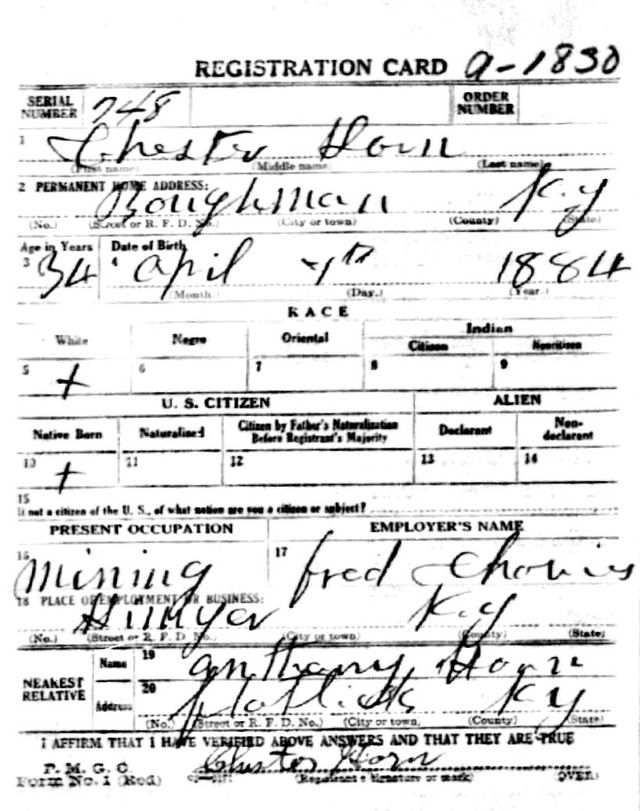 REGISTRATION CARD a-1830
SERIAL NUMBER 748 ORDER NUMBER
1 Chester Horn
(First name) (Middle name) (Last name)
2 PERMANENT HOME ADDRESS:
Boughman Ky
(No.) (Street or R. F. D. No.) (City or town) (County) (State)
Age in Years Date of Birth
3 34 4 April 1884
(Month.) (Day.) (Year.)
RACE
White Negro Oriental Indian
Citizen Noncitizen
5 + 6 7 8 9
U. S. CITIZEN ALIEN
Native Born Naturalized Citizen by Father's Naturalization Before Registrant's Majority Declarant Non-declarant
10 + 11 12 13 14
15
If not a citizen of the U. S., of what nation are you a citizen or subject?
PRESENT OCCUPATION EMPLOYER'S NAME
16 Mining 17 fred
18 PLACE OF EMPLOYMENT OR BUSINESS:
Himyar Ky
(No.) (Street or R. F. D. No.) (City or town) (County) (State)
NEAREST RELATIVE
Name 19 Anthany Horn
Address 20 Ky
(No.) (Street or R. F. D. No.) (City or town) (County) (State)
I AFFIRM THAT I HAVE VERIFIED ABOVE ANSWERS AND THAT THEY ARE TRUE
P. M. G. O.
Form No. 1 (Red) Chester Horn
(Registrant's signature or mark) (OVER)